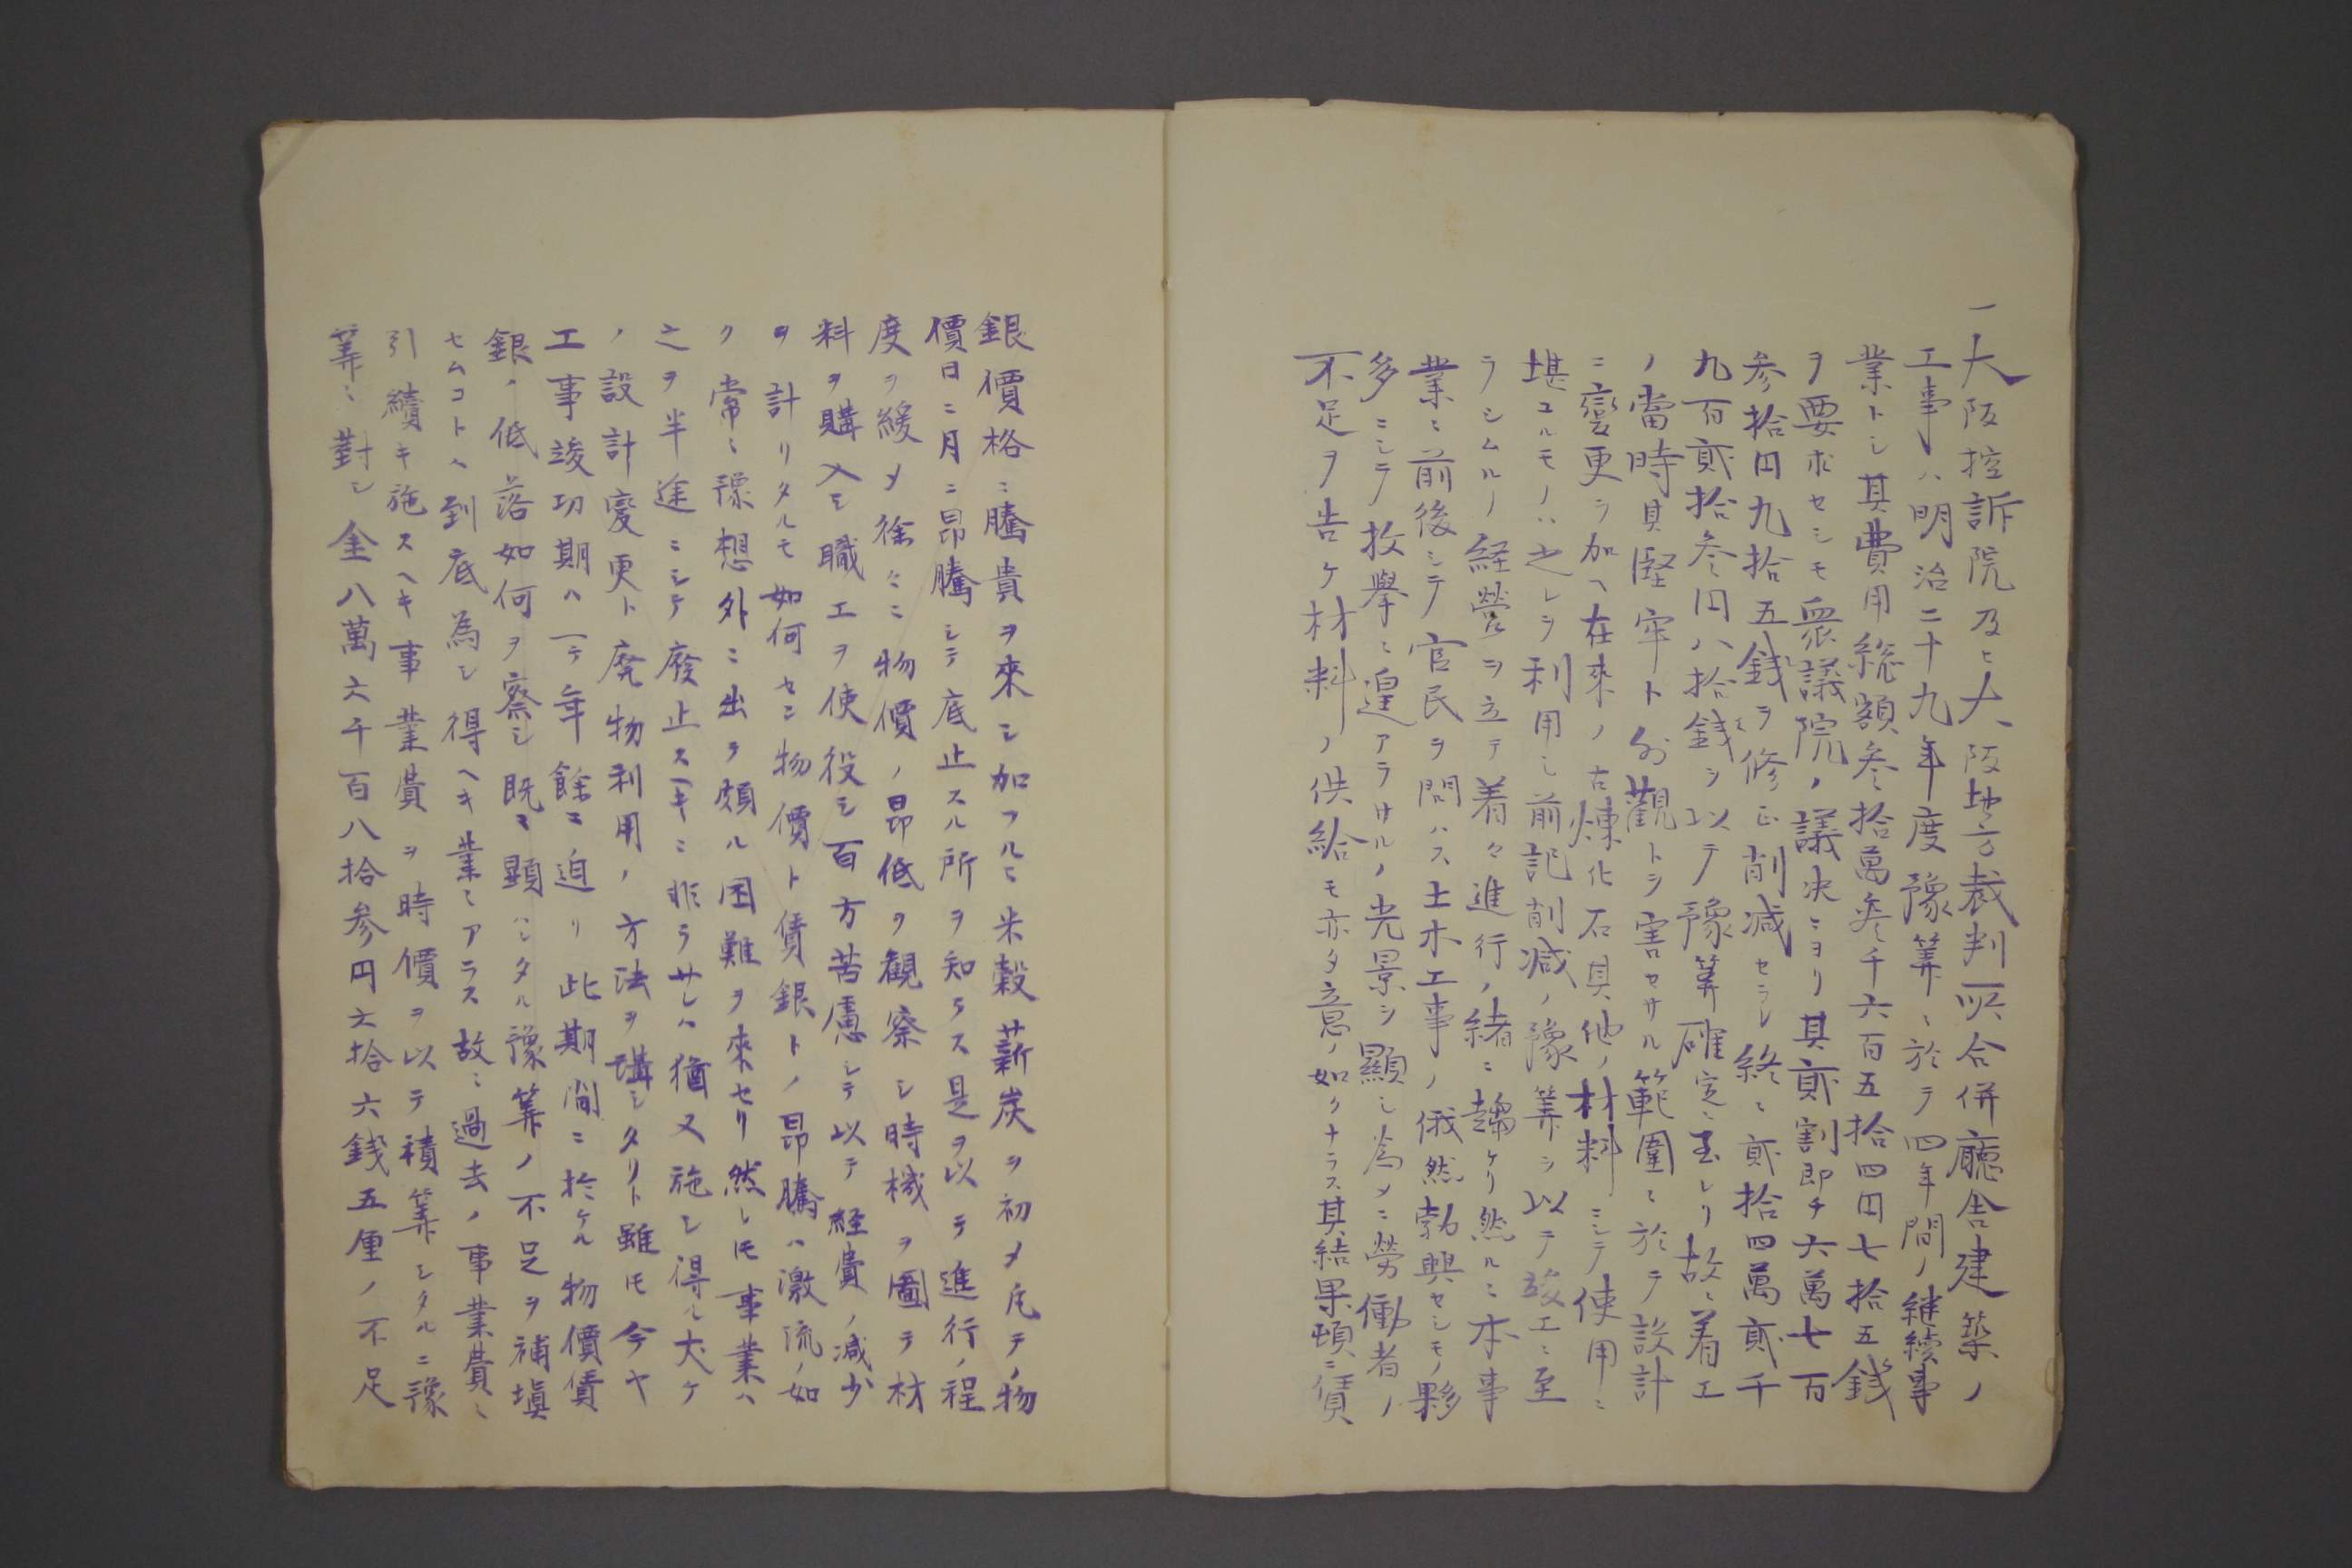 一大阪控訴院及ヒ大阪地方裁判所合併廳舎建築ノ
工事ハ明治二十九年度豫筭ニ於テ四年間ノ継続事
業トシ其費用総額参拾萬参千六百五拾四円七拾五銭
ヲ要求セシモ衆議院ノ議决ニヨリ其貳割即チ六萬七百
参拾円九拾五銭ヲ修正削減セラレ終ニ貳拾四萬貳千
九百貳拾参円八拾銭ヲ以テ豫筭確定ニ至レリ故ニ着工
ノ當時其堅牢ト外觀トヲ害セサル範圍ニ於テ設計
ニ變更ヲ加ヘ在来ノ古煉化石其他ノ材料ニシテ使用ニ
堪ユルモノハ之レヲ利用シ前記削減ノ豫筭ヲ以テ竣工ニ至
ラシムルノ経営ヲ立テ着々進行ノ緒ニ趨ケリ然ルニ本事
業ニ前後シテ官民ヲ問ハス土木工事ノ俄然勃興セシモノ夥
多ニシテ枚擧ニ遑アラサルノ光景ヲ顯シ為メニ勞働者ノ
不足ヲ告ケ材料ノ供給モ亦タ意ノ如クナラス其結果頓ニ賃
銀價格ニ騰貴ヲ來シ加フルニ米穀薪炭ヲ初メ凡テノ物
價日ニ月ニ昂騰シテ底止スル所ヲ知ラス是ヲ以テ進行ノ程
度ヲ緩メ徐々ニ物價ノ昂低ヲ観察シ時機ヲ圖テ材
料ヲ購入シ職工ヲ使役シ百方苦慮シテ以テ経費ノ減少
ヲ計リタルモ如何セン物價ト賃銀トノ昂騰ハ激流ノ如
ク常ニ豫想外ニ出ヲ頗ル困難ヲ來セリ然レ𪜈事業ハ
之ヲ半途ニシテ廢止スヘキニ非ラサレハ猶又施シ得ル丈ケ
ノ設計変更ト廃物利用ノ方法ヲ講シタリト雖𪜈今ヤ
工事竣功期ハ一テ年餘ニ迫リ此期間ニ於ケル物價賃
銀ノ低落如何ヲ察シ既ニ顕ハシタル豫筭ノ不足ヲ補塡
セムコトハ到底為シ得ヘキ業ニアラス故ニ過去ノ事業費ニ
引續キ施スヘキ事業費ヲ時價ヲ以テ積筭シタルニ豫
筭ニ對シ金八萬六千百八拾参円六拾六銭五厘ノ不足